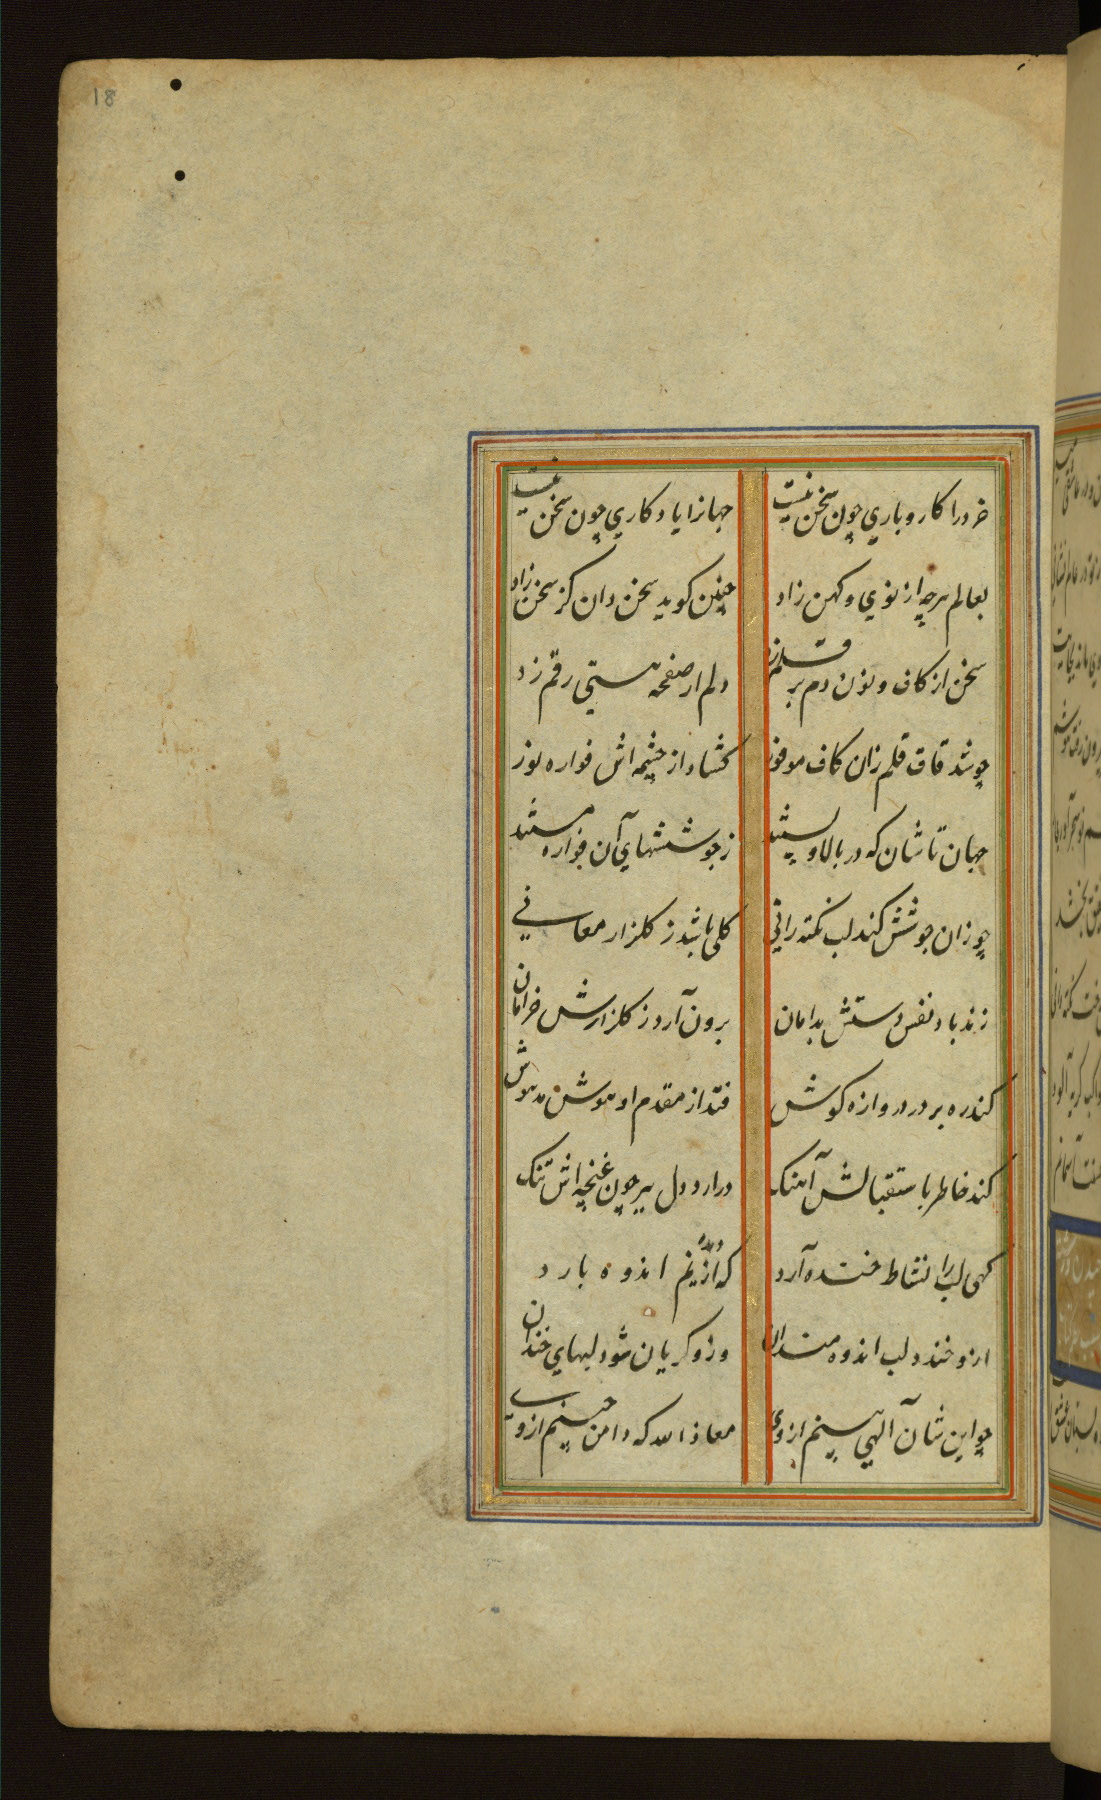 18
خرد را کار و باری چون سخن نیست
جهانرا یادکاری چون سخن نیست
بعالم هرچه از نوی و کهن زاد
چنین کوید سخن دان کز سخن زاد
سخن از کاف و نون دم بر قلم زد
قلم از صفحه هستی رقم زد
چو شد قاف قلم زان کاف موفور
کشاد از چشمه اش فواره نور
جهان تا شان که در بالا و پستند
ز جوششهای آن فواره هستند
چو زان جوشش کند لب نکته رانی
کلی باشد ز کلزار معانی
زند باد نفس دستش بدامان
برون آرد ز کلزارش خرامان
کند ره بر در دروازه کوش
فتد از مقدم او هوش مدهوش
کند خاطر باستقبالش آهنک
درآرد دل ببر چون غنچه اش تنک
کهی لب را نشاط خنده آرد
که از دیده نم اندوه بارد
ازو خندد لب اندوه مندان
وزو کریان شود لبهای خندان
چو این شان آلهی بینم از وی
معاذ الله که دامن چینم از وی